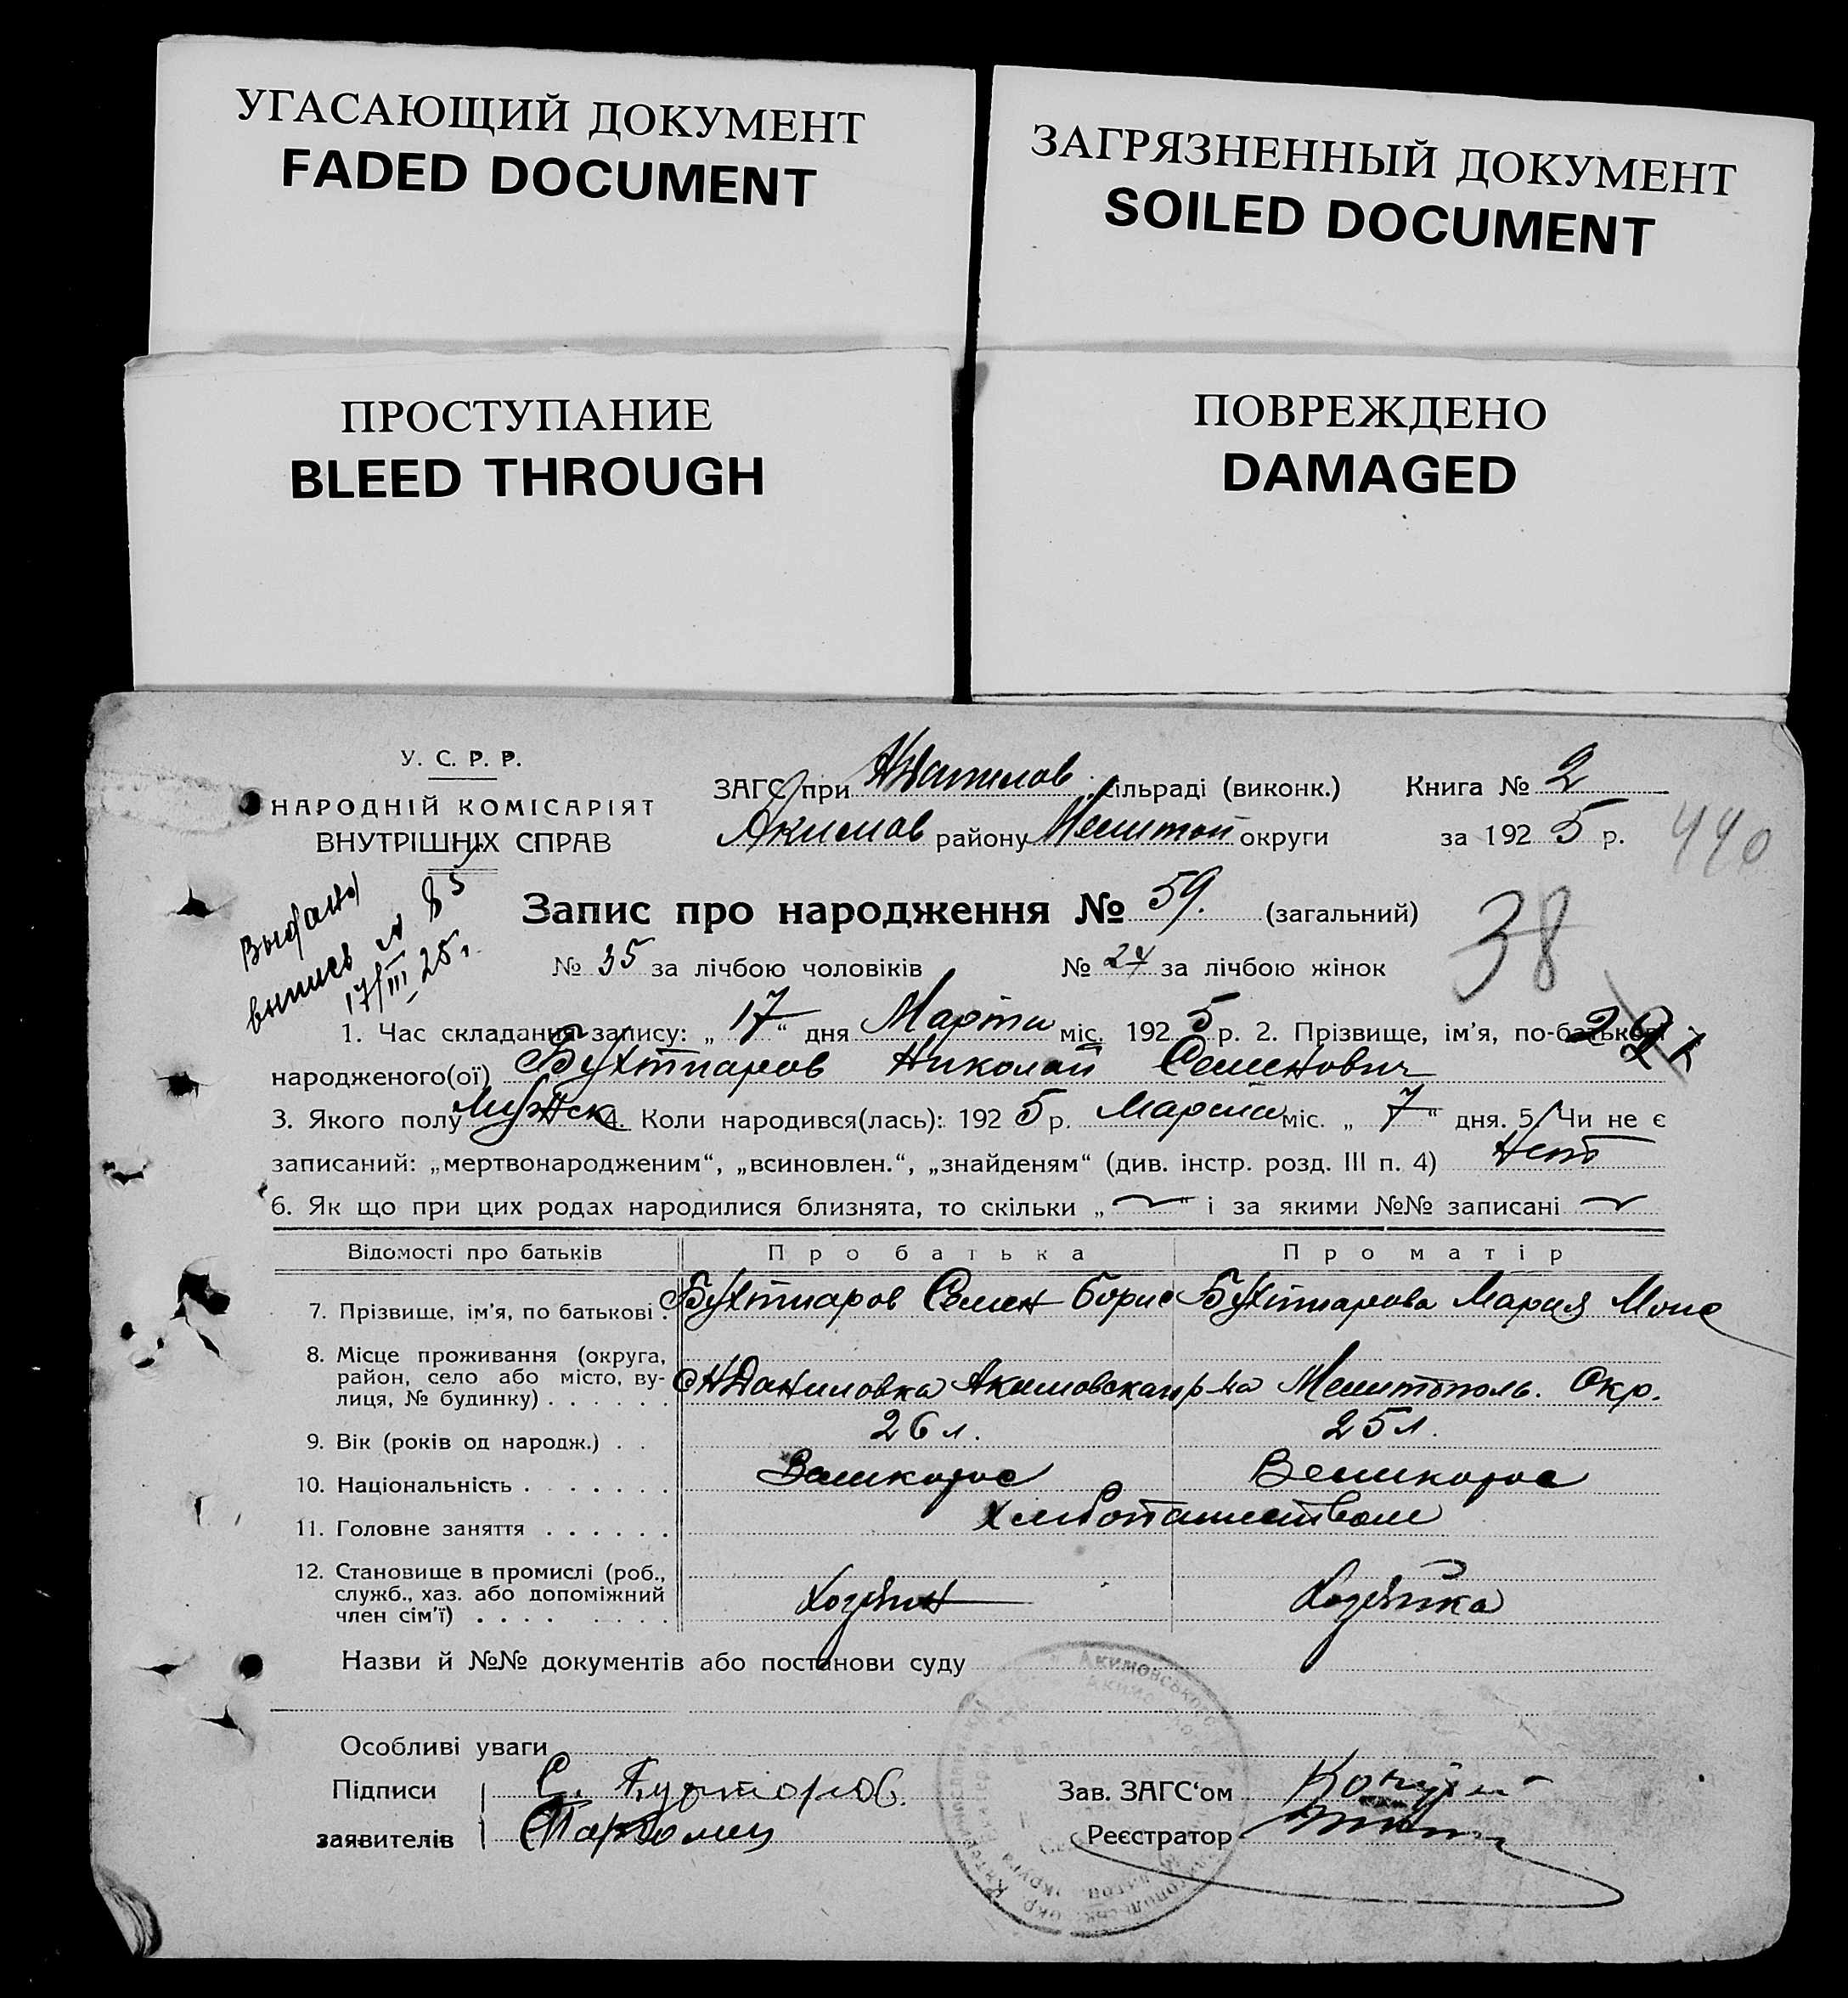 УГАСАЮЩИЙ ДОКУМЕНТ
FADED DOCUMENT
ЗАГРЯЗНЕННЫЙ ДОКУМЕНТ
SOILED DOCUMENT
ПРОСТУПАНИЕ
BLEED THROUGH
ПОВРЕЖДЕНО
DAMAGED
У. С. Р. Р.
НАРОДНІЙ КОМІСАРІЯТ
ВНУТРІШНІХ СПРАВ
ЗАГС при НДанилов сільраді (виконк.) Книга № 2
Акимов району Мелитоп округи за 192 5 р.
440
Выдана
выпись № 85
17/III 25 г.
Запис про народження № 59. (загальний)
38
№ 35 за лічбою чоловіків № 24 за лічбою жінок
1. Час складання запису: „ 17 “ дня Марта міс. 192 5 р. 2. Прізвище, ім'я, по-батькові
народженого(ої) Бухтиаров Николай Семенович
3. Якого полу Мужск 4. Коли народився(лась): 192 5 р. Марта міс. „ 7 “ дня. 5. Чи не є
записаний: „мертвонародженим“, „всиновлен.“, „знайденям“ (див. інстр. розд. III п. 4) Нет
6. Як що при цих родах народилися близнята, то скільки „ “ і за якими №№ записані
Відомості про батьків Про батька Про матір
7. Прізвище, ім'я, по батькові . Бухтиаров Семен Борис Бухтиарова Мария Моис
8. Місце проживання (округа,
район, село або місто, ву-
лиця, № будинку) . . . . . . С НДаниловка Акимовскаго р-на Мелитополь. Окр.
9. Вік (років од народж.) . . 26 л. 25 л.
10. Національність . . . . . . . Великорос Великорос
11. Головне заняття . . . . . . Хлебопашеством
12. Становище в промислі (роб.,
служб., хаз. або допоміжний
член сім'ї) . . . . . . . . Хозяин Хозяйка
Назви й №№ документів або постанови суду
Особливі уваги
Підписи С. Бухторов. Зав. ЗАГС'ом
заявителів Реєстратор